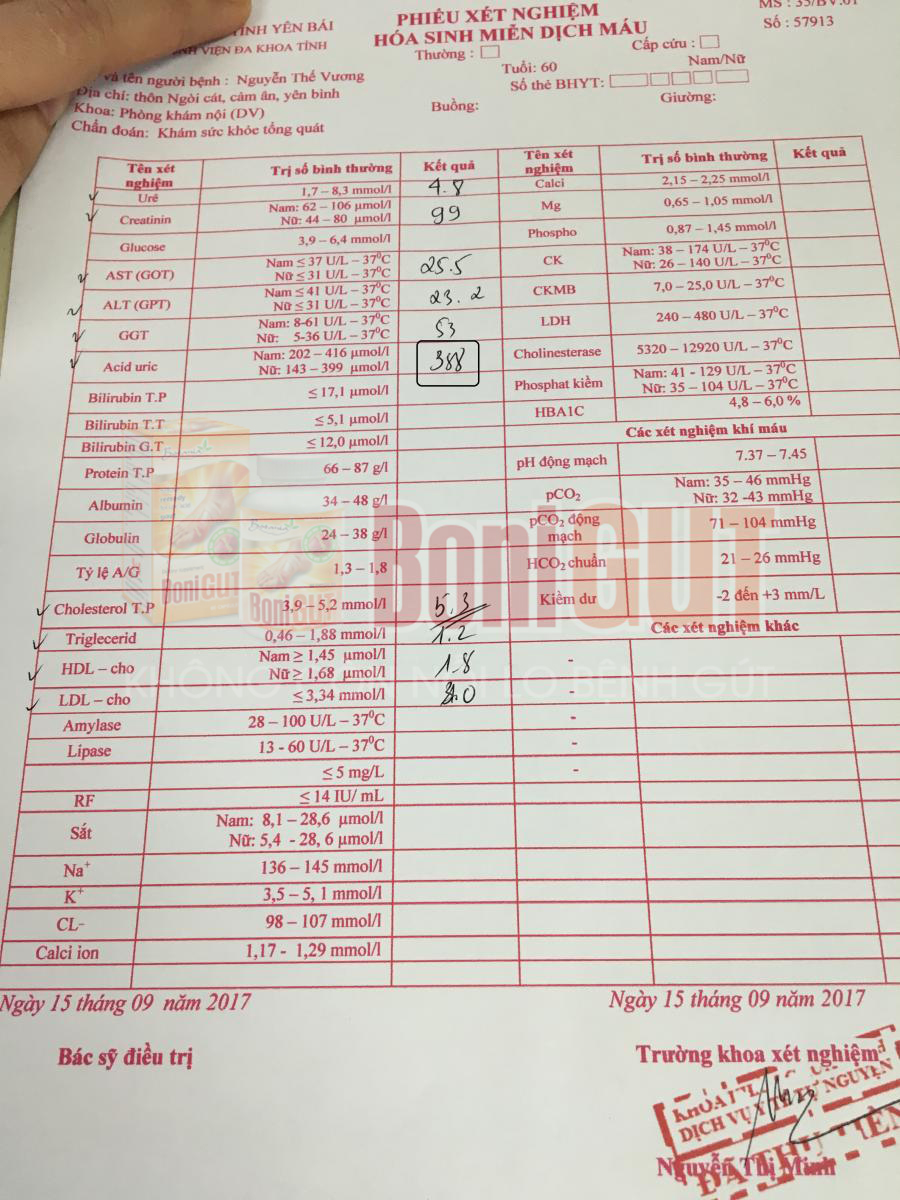 TỈNH YÊN BÁI
VIỆN ĐA KHOA TỈNH
PHIẾU XÉT NGHIỆM
HÓA SINH MIỄN DỊCH MÁU
MS : 35/BV.01
Số : 57913
Thường :
Cấp cứu :
và tên người bệnh : Nguyễn Thế Vương
Tuổi: 60
Nam/Nữ
Địa chỉ: thôn Ngòi cát, cảm ân, yên bình
Số thẻ BHYT:
Khoa: Phòng khám nội (DV)
Buồng:
Giường:
Chẩn đoán: Khám sức khỏe tổng quát
Tên xét nghiệm Trị số bình thường Kết quả Tên xét nghiệm Trị số bình thường Kết quả
Urê 1,7 – 8,3 mmol/l 4.8 Calci 2,15 – 2,25 mmol/l
Creatinin Nam: 62 – 106 µmol/l 99 Mg 0,65 – 1,05 mmol/l
Nữ: 44 – 80 µmol/l
Glucose 3,9 – 6,4 mmol/l Phospho 0,87 – 1,45 mmol/l
AST (GOT) Nam ≤ 37 U/L – 37⁰C 25.5 CK Nam: 38 – 174 U/L – 37⁰C
Nữ ≤ 31 U/L – 37⁰C Nữ: 26 – 140 U/L – 37⁰C
ALT (GPT) Nam ≤ 41 U/L – 37⁰C 23.2 CKMB 7,0 – 25,0 U/L – 37⁰C
Nữ ≤ 31 U/L – 37⁰C
GGT Nam: 8-61 U/L – 37⁰C 53 LDH 240 – 480 U/L – 37⁰C
Nữ: 5-36 U/L – 37⁰C
Acid uric Nam: 202 – 416 µmol/l 388 Cholinesterase 5320 – 12920 U/L – 37⁰C
Nữ: 143 – 399 µmol/l
Bilirubin T.P ≤ 17,1 µmol/l Phosphat kiềm Nam: 41 - 129 U/L – 37⁰C
Nữ: 35 – 104 U/L – 37⁰C
Bilirubin T.T ≤ 5,1 µmol/l HBA1C 4,8 – 6,0 %
Bilirubin G.T ≤ 12,0 µmol/l Các xét nghiệm khí máu
Protein T.P 66 – 87 g/l pH động mạch 7.37 – 7.45
Albumin 34 – 48 g/l pCO₂ Nam: 35 – 46 mmHg
Nữ: 32 -43 mmHg
Globulin 24 – 38 g/l pCO₂ động mạch 71 – 104 mmHg
Tỷ lệ A/G 1,3 – 1,8 HCO₂ chuẩn 21 – 26 mmHg
BoniGUT
Cholesterol T.P 3,9 – 5,2 mmol/l 5.3 Kiềm dư -2 đến +3 mm/L
Triglecerid 0,46 – 1,88 mmol/l 1.2 Các xét nghiệm khác
HDL – cho Nam ≥ 1,45 µmol/l 1.8 -
Nữ ≥ 1,68 µmol/l
LDL – cho ≤ 3,34 mmol/l .0 -
Amylase 28 – 100 U/L – 37⁰C -
Lipase 13 - 60 U/L – 37⁰C -
≤ 5 mg/L -
RF ≤ 14 IU/ mL
Sắt Nam: 8,1 – 28,6 µmol/l
Nữ: 5,4 - 28, 6 µmol/l
Na⁺ 136 – 145 mmol/l
K⁺ 3,5 – 5, 1 mmol/l
CL- 98 – 107 mmol/l
Calci ion 1,17 - 1,29 mmol/l
Ngày 15 tháng 09 năm 2017
Ngày 15 tháng 09 năm 2017
Bác sỹ điều trị
Trường khoa xét nghiệm
DỊCH VỤ Y TẾ TỰ NGUYỆN
ĐÃ THU TIỀN
Nguyễn Thị Minh